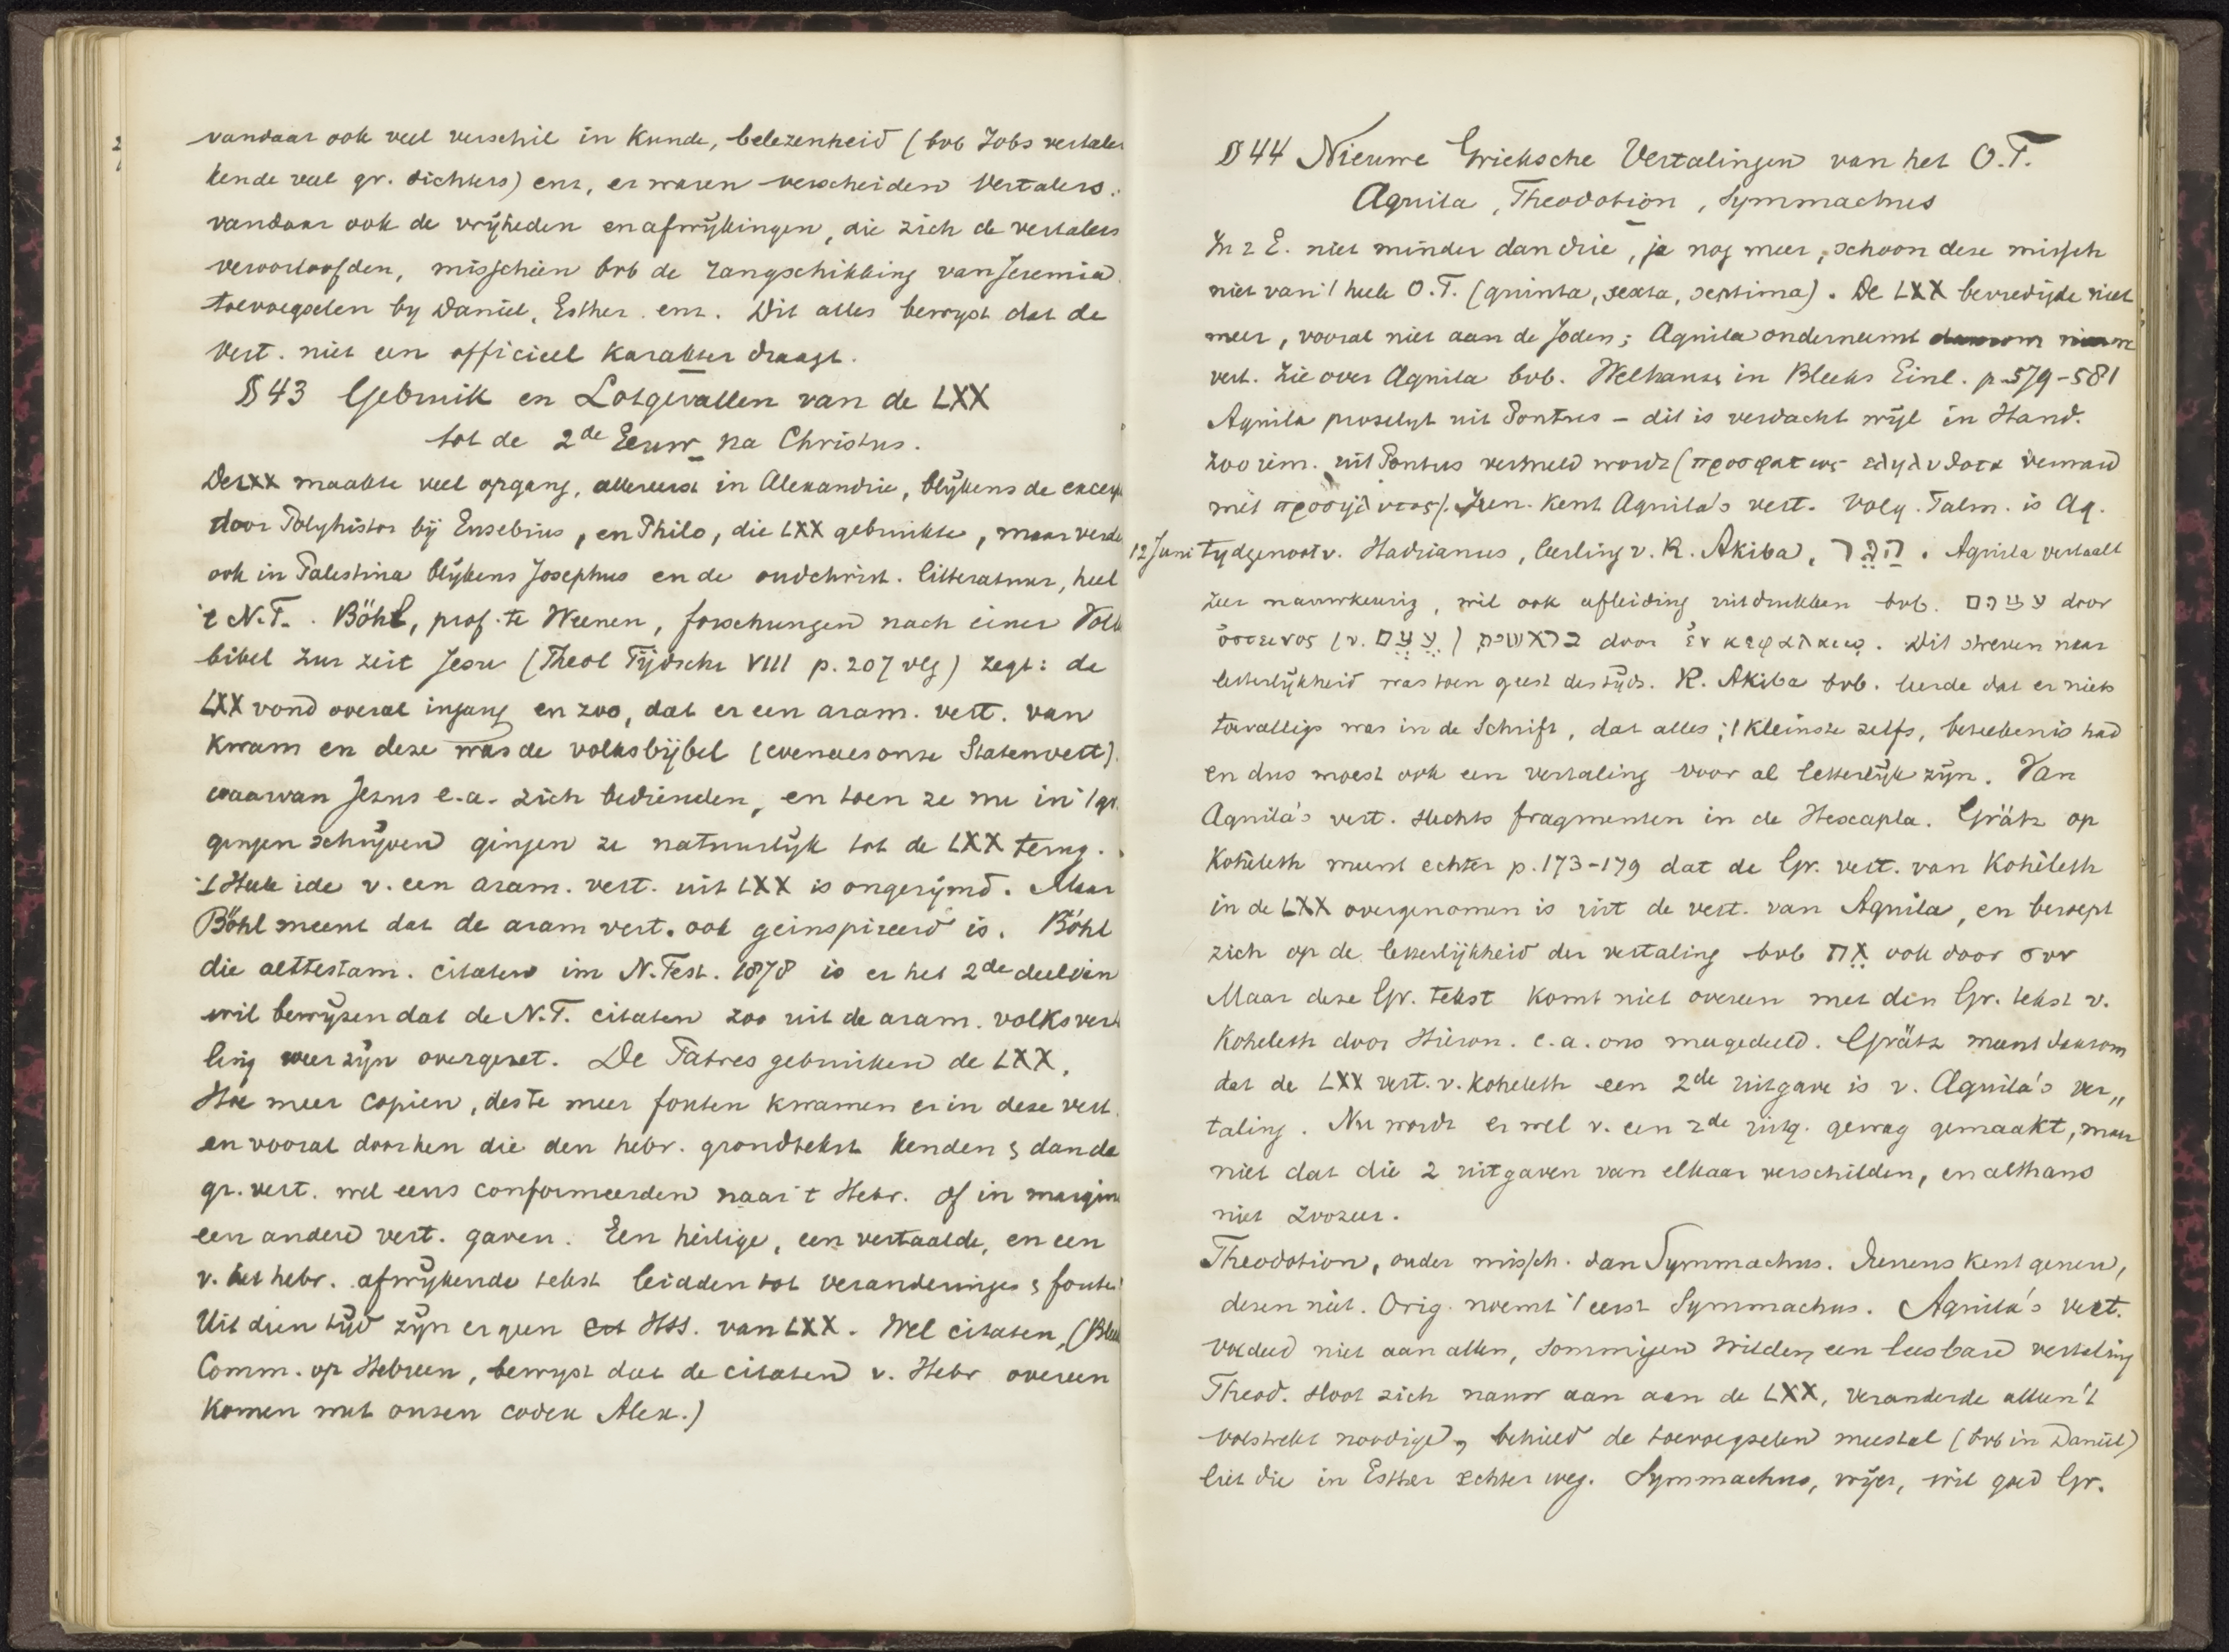 vandaar ook veel verschil in kunde, belezenheid (bvb Jobs vertaler
kende veel gr. dichters) enz, er waren verscheiden Vertalers.
vandaar ook de vrijheden en afwijkingen, die zich de vertalers
veroorloofden, misschien bvb de rangschikking van Jeremia
toevoegselen by Daniel, Esther enz. Dit alles bewyst dat de
Vert. niet een officieel karakter draagt.
§ 43 Gebruik en Lotgevallen van de LXX
tot de 2de Eeuw na Christus.
De LXX maakte veel opgang, allereerst in Alexandrie, blijkens de
door Polyhistor bij Eusebius, en Philo, die LXX gebruikte, maar
ook in Palestina blijkens Josephus en de oudchrist. litteratuur, heel
't N.T. . Böhl, prof. te Weenen, forschungen nach einer
bibel zur zeit Jesu (Theol Tijdschr VIII p. 207 vlg) zegt: de
LXX vond overal ingang en zoo, dat er een aram. vert. van
kwam en deze was de volksbijbel (evenals onze Statenvert).
waarvan Jezus e.a. zich bedienden, en toen ze nu in 't gr.
gingen schrijven gingen ze natuurlijk tot de LXX terug.
't Heele idee v. een aram. vert. uit LXX is ongerijmd. Maar
Böhl meent dat de aram vert. ook geinspireerd is. Böhl
die alttestam. citaten im N. Test. 1878 is er het 2de deel van
wil bewijzen dat de N.T. citaten zoo uit de aram. volksver
ling weer zijn overgezet. De Patres gebruiken de LXX.
Hoe meer copien, des te meer fouten kwamen er in deze vert.
en vooral door hen die den hebr. grondtekst kenden & dan de
gr. vert. wel eens conformeerden naar 't Hebr. of in margine
een andere vert. gaven. Een heilige, een vertaalde, en een
v. het hebr. afwijkende tekst leidden tot veranderingen & fouten
Uit dien tijd zijn er geen HSS. van LXX. Wel citaten, (Bleek
Comm. op Hebreen, bewyst dat de citaten v. Hebr overeen
komen met onzen codex Alex.)
§ 44 Nieuwe Grieksche Vertalingen van het O.T.
Aquila, Theodotion, Symmachus
In 2 E. niet minder dan drie, ja nog meer, schoon deze missch
niet van 't heele O.T. (quinta, sexta, septima). De LXX bevredigde niet
meer, vooral niet aan de Joden; Aquila onderneemt
vert. Zie over Aquila bvb. Welhaus, in Bleeks Einl. p. 579-581
Aquila proselyt uit Pontus - dit is verdacht wijl in Hand.
zoo iem. uit Pontus vermeld wordt (προσφατως εληλυθοτα verward
met προσηλυτος). Iren. kent Aquila's vert. Volg. Talm. is Aq.
12 Juni tydgenoot v. Hadrianus, leerling v. R. Akiba, . Aquila vertaalt
zeer nauwkeurig, wil ook afleiding uitdrukken bvb. door
ὀστεινος (v. עֶצֶם) door ἐν κεφαλαιῳ. Dit streven naar
letterlijkheid was toen geest des tijds. R. Akiba bvb. leerde dat er niets
toevalligs was in de Schrift, dat alles, 't kleinste zelfs, beteekenis had
en dus moest ook een vertaling voor al letterlijk zijn. Van
Aquila's vert. slechts fragmenten in de Hexapla. Grätz op
Koheleth meent echter p. 173-179 dat de Gr. vert. van Koheleth
in de LXX overgenomen is uit de vert. van Aquila, en beroept
zich op de letterlijkheid der vertaling bvb אֵת ook door συν
Maar deze Gr. tekst komt niet overeen met den Gr. tekst v.
Koheleth door Hieron. e.a. ons meegedeeld. Grätz meent daarom
dat de LXX vert. v. Koheleth een 2de uitgave is v. Aquila's ver„
taling. Nu wordt er wel v. een 2de uitg. gewag gemaakt, maar
niet dat die 2 uitgaven van elkaar verschilden, en althans
niet zoozeer.
Theodotion, ouder missch. dan Symmachus. Irenens kent genen,
dezen niet. Orig. noemt 't eerst Symmachus. Aquila's vert.
voldeed niet aan allen, sommigen wilden een leesbare vertaling
Theod. sloot zich nauw aan aan de LXX, veranderde alleen 't
volstrekt noodige, behield de toevoegselen meestal (bvb in Daniel)
liet die in Esther echter weg. Symmachus, vrijer, wil goed Gr.